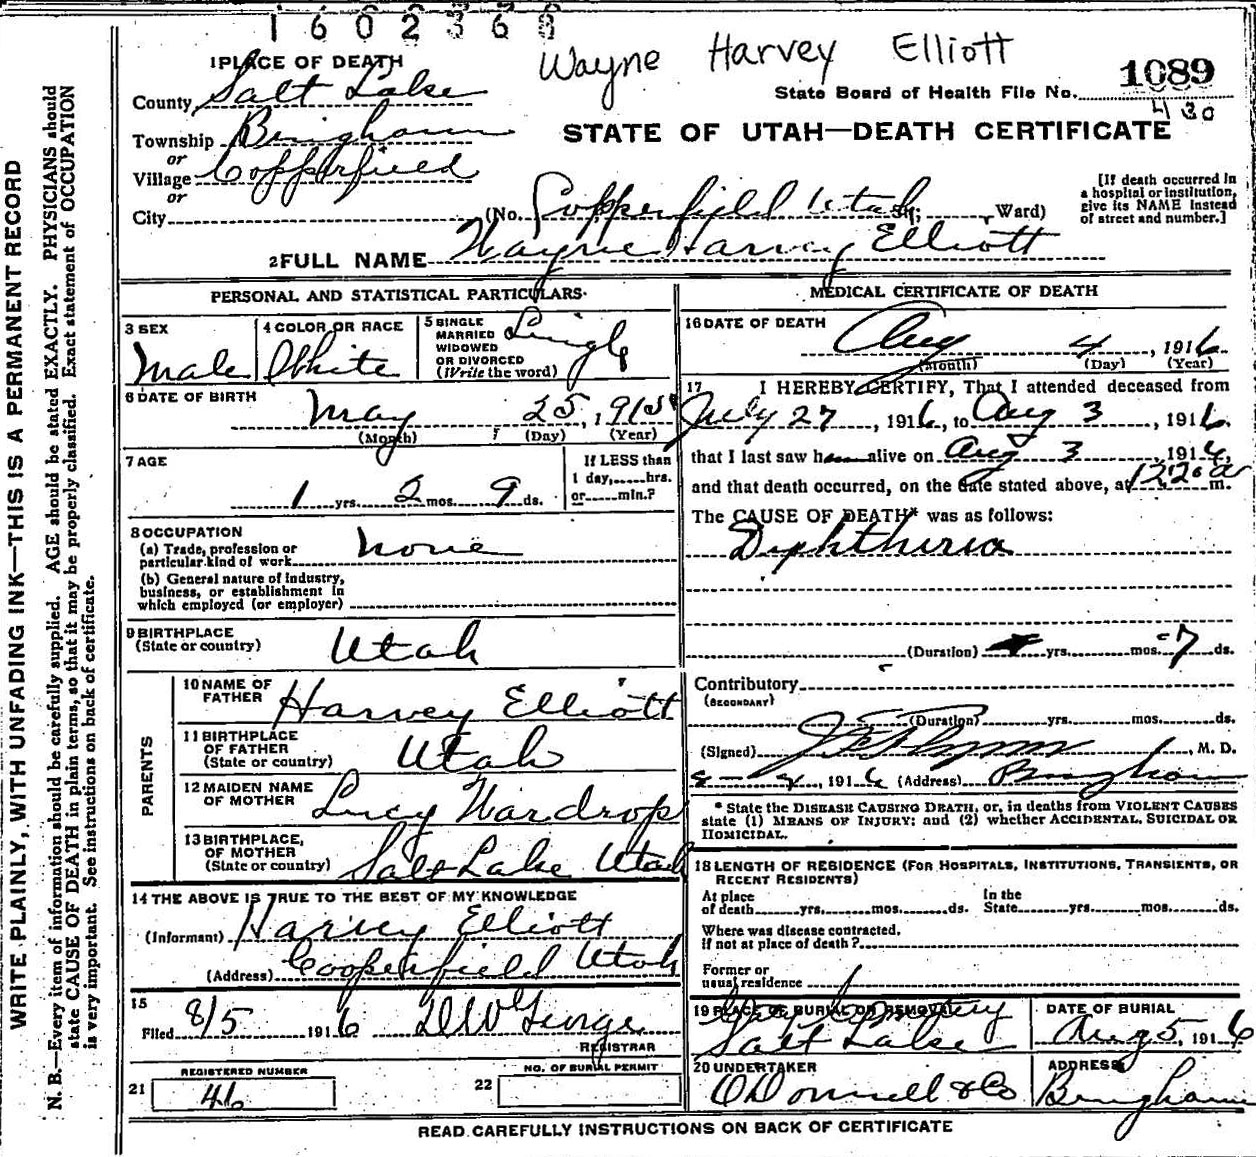 1602368
Wayne Harvey Elliott
1 PLACE OF DEATH
State Board of Health File No. 1089
430
County Salt Lake
STATE OF UTAH—DEATH CERTIFICATE
Township Bingham
or
Village Copperfield
or
City (No. Copperfield Utah St; Ward)
[If death occurred in
a hospital or institution,
give its NAME instead
of street and number.]
2 FULL NAME Wayne Harvey Elliott
PERSONAL AND STATISTICAL PARTICULARS
3 SEX
Male
4 COLOR OR RACE
White
5 SINGLE
MARRIED
WIDOWED
OR DIVORCED
(Write the word)
Single
6 DATE OF BIRTH
May 25, 1915
(Month) (Day) (Year)
7 AGE
1 yrs. 2 mos. 9 ds.
If LESS than
1 day, hrs.
or min.?
8 OCCUPATION
(a) Trade, profession or
particular kind of work none
(b) General nature of industry,
business, or establishment in
which employed (or employer)
9 BIRTHPLACE
(State or country)
Utah
PARENTS
10 NAME OF
FATHER
Harvey Elliott
11 BIRTHPLACE
OF FATHER
(State or country)
Utah
12 MAIDEN NAME
OF MOTHER
Lucy Wardrop
13 BIRTHPLACE,
OF MOTHER
(State or country)
Salt Lake Utah
14 THE ABOVE IS TRUE TO THE BEST OF MY KNOWLEDGE
(Informant) Harvey Elliott
(Address) Copperfield Utah
15
Filed 8/5 1916
REGISTRAR
21
REGISTERED NUMBER
46
22
NO. OF BURIAL PERMIT
MEDICAL CERTIFICATE OF DEATH
16 DATE OF DEATH
Aug 4, 1916
(Month) (Day) (Year)
17 I HEREBY CERTIFY, That I attended deceased from
July 27, 1916, to Aug 3, 1916,
that I last saw h alive on Aug 3, 1916,
and that death occurred, on the date stated above, at 1220 a m.
The CAUSE OF DEATH* was as follows:
Diphtheria
(Duration) yrs. mos. 7 ds.
Contributory
(SECONDARY)
(Duration) yrs. mos. ds.
(Signed) , M. D.
, 1916 (Address) Bingham
* State the DISEASE CAUSING DEATH, or, in deaths from VIOLENT CAUSES
state (1) MEANS OF INJURY; and (2) whether ACCIDENTAL, SUICIDAL OR
HOMICIDAL.
18 LENGTH OF RESIDENCE (FOR HOSPITALS, INSTITUTIONS, TRANSIENTS, OR
RECENT RESIDENTS)
At place
of death yrs. mos. ds.
In the
State yrs. mos. ds.
Where was disease contracted,
If not at place of death?
Former or
usual residence
19 PLACE OF BURIAL OR REMOVAL
Cemetery
Salt Lake
DATE OF BURIAL
Aug 5, 1916
20 UNDERTAKER
O'Donnell & Co
ADDRESS
Bingham
READ CAREFULLY INSTRUCTIONS ON BACK OF CERTIFICATE
WRITE PLAINLY, WITH UNFADING INK—THIS IS A PERMANENT RECORD
N. B.—Every item of information should be carefully supplied. AGE should be stated EXACTLY. PHYSICIANS should
state CAUSE OF DEATH in plain terms, so that it may be properly classified. Exact statement of OCCUPATION
is very important. See instructions on back of certificate.